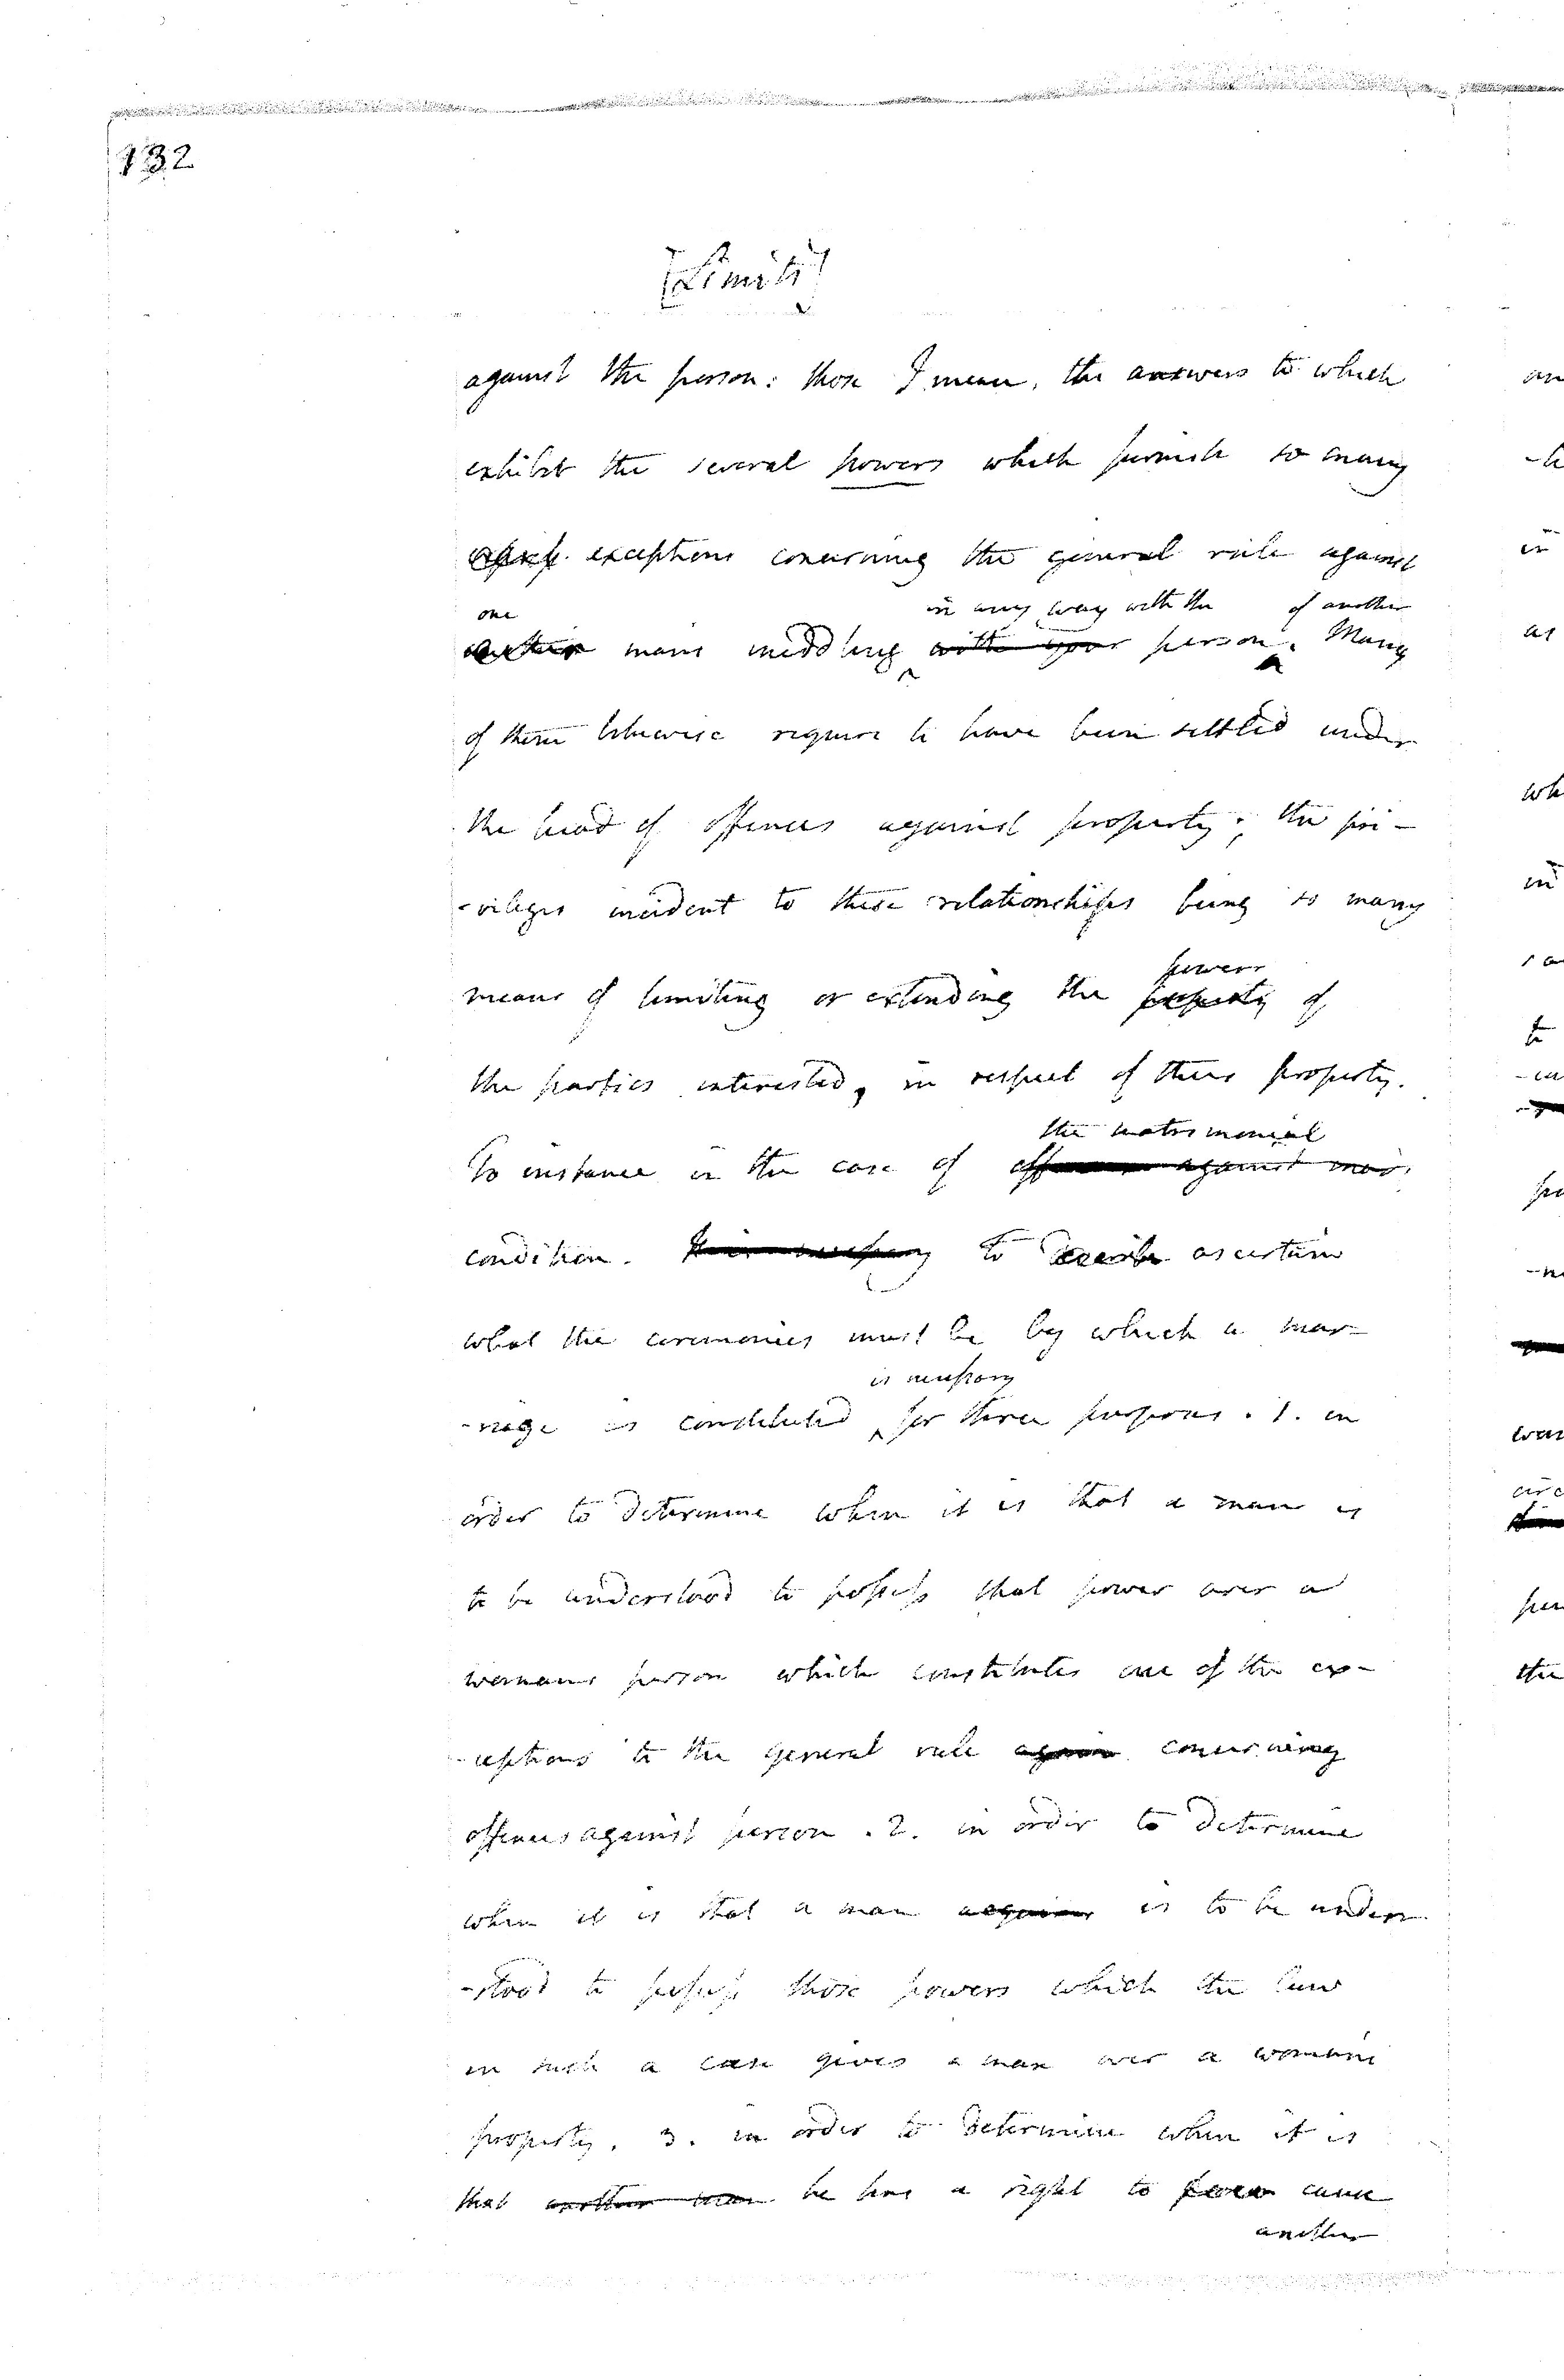 132
[Limits]
against the person: those I mean, the answers to which
exhibit the several powers which furnish so many
exceptions concerning the general rule against
one in any way with the of another
another mans meddling with your person. Many
of them likewise require to have been settled under
the head of offences against property; the pri-
-vileges incident to these relationships being so many
means of limiting or extending the property of
powers
the parties interested, in respect of their property.
the matrimonial
To instance in the case of against mar.
condition. to ascertain
what the ceremonies must be by which a mar-
is necessary
-riage is constituted for three purposes. 1. in
order to determine when it is that a man is
to be understood to possess that power over a
womans person which constitutes one of the ex-
-ceptions to the general rule concerning
offences against person. 2. in order to determine
when it is that a man is to be under
-stood to possess those powers which the law
in such a case gives a man over a womans
property. 3. in order to determine when it is
that another man he has a right to cause
another